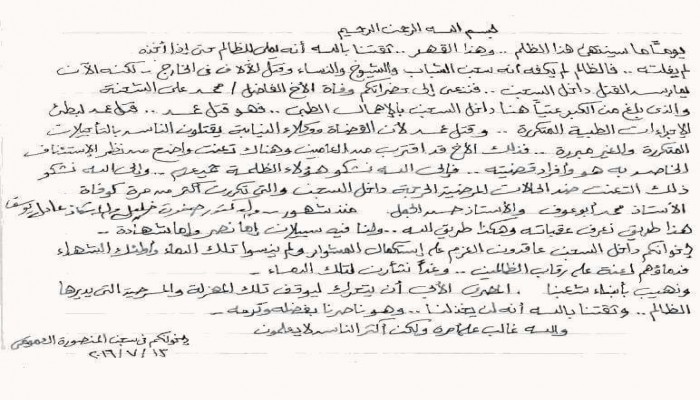 بسم الله الرحمن الرحيم
يوماً ما سينتهى هذا الظلم .. وهذا القهر .. ثقتنا بالله أنه يملى للظالم حتى إذا أخذه
لم يفلته .. فالظالم لم يكفه أنه سجن الشباب والشيوخ والنساء وقتل الآلاف فى الخارج .. لكنه الآن
يمارسه القتل داخل السجن .. فننعى إلى حضراتكم وفاة الأخ الفاضل / محمد على
والذى بلغ من الكبر عتياً هنا داخل السجن بالإهمال الطبى .. فهو قتل عمد .. قتل عمد لبطئ
الإجراءات الطبية المتكررة .. وقتل عمد لأن القضاة ووكلاء النيابة يقتلون الناس بالتأجيلات
المتكررة والغير مبررة .. فذلك الأخ قد اقترب من العامين وهناك تعنت واضح من نظر الإستئناف
الخاص به هو وأفراد قضيته .. فإلى الله نشكو هؤلاء الظلمة جميعهم .. وإلى الله نشكو
ذلك التعنت ضد الحالات المرضية الحرجة داخل السجن والتى تكررت أكثر من مرة كوفاة
الأستاذ محمد أبوعوف والأستاذ منذ شهور .. والدكتور صفوت خليل عادل
هذا طريق نعرف عقباته وهكذا طريق الله .. ولنا فيه سبيلان إما نصر وإما شهادة ..
إخوانكم داخل السجن عاقدون العزم على إستكمال المشوار ولم ينسوا تلك الدماء وأولئك الشهداء
فدماؤهم لعنة على رقاب الظالمين .. وغداً نثأر لتلك الدماء ..
ونهيب بأبناء شعبنا المصرى الأبى أن يتحرك ليوقف تلك المهزلة والمسرحية التى يديرها
الظالم .. وثقتنا بالله أنه لن يخذلنا .. وهو ناصرنا بفضله وكرمه ..
والله غالب على أمره ولكن أكثر الناس لا يعلمون
إخوانكم فى سجن المنصورة العمومى
٢٠١٦/٧/١٣